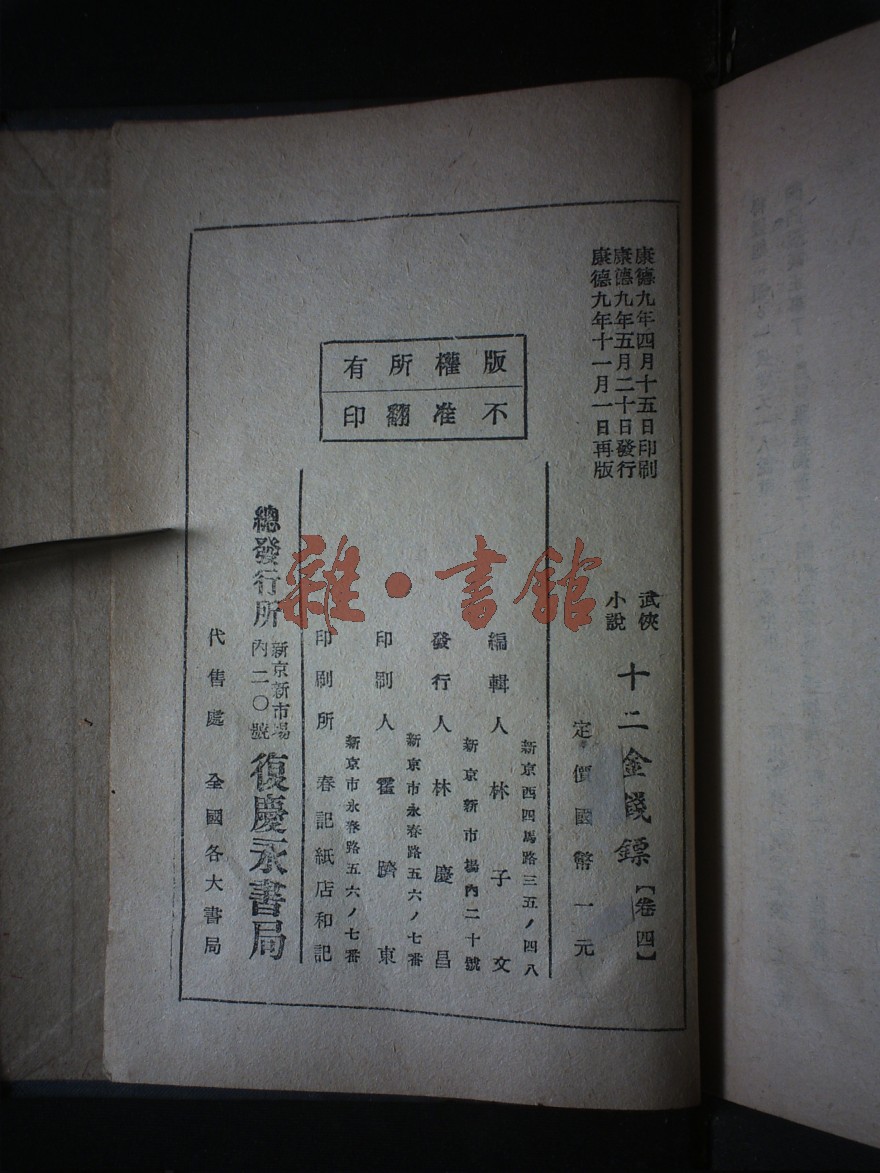 康德九年四月十五日印刷
康德九年五月二十日發行
康德九年十一月一日再版
武俠小說 十二金錢鏢【卷四】
定價國幣一元
版權所有
不准翻印
新京西四馬路三五ノ四八
編輯人 林子文
新京新市場內二十號
發行人 林慶昌
新京市永春路五六ノ七番
印刷人 霍躋東
新京市永春路五六ノ七番
印刷所 春記紙店和記
總發行所 新京新市場內二〇號 復慶永書局
代售處 全國各大書局
雜·書館